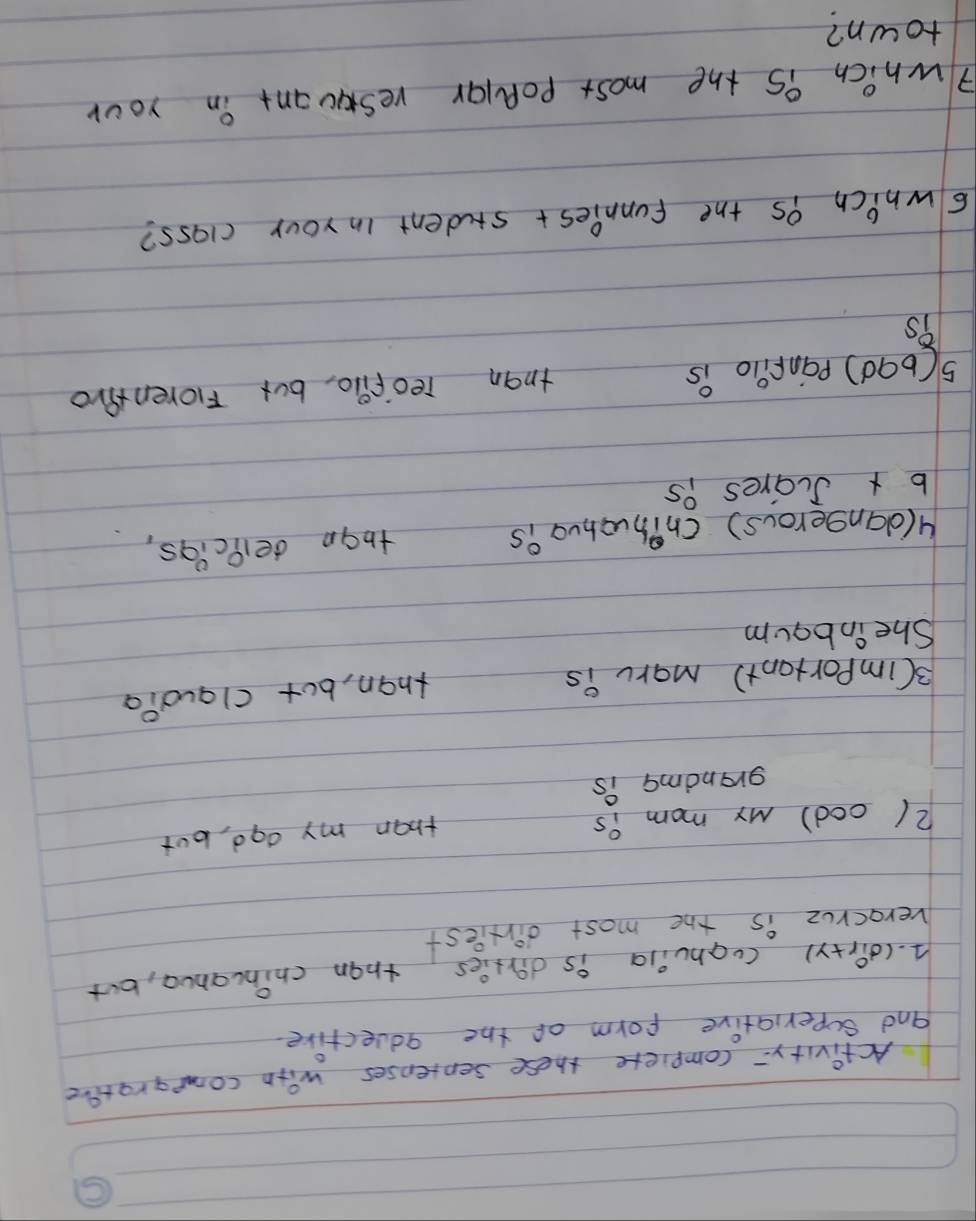 Activity- complete these sentenses with comparative
and superlative form of the adjective.
1.-(dirty) Coahuila is dirties than chihuahua, but
veracruz is the most dirtiest
2( ood) My mom is than my dad, but
grandma is
3(important) Maru is than, but Claudia
Sheinbaum
4(dangerous) Chihuahua is than delicias,
b t Juares is
5(bad) Panfilo is than Teofilo, but Florentino
is
6 which is the funniest student in your class?
7 which is the most poplar restauant in your
town?